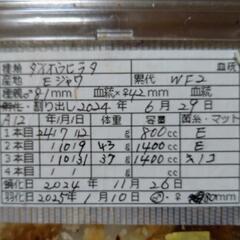 種類 タイホウヒラタ 血統
産地 Eジャワ 累代 WF2
種親♂91mm 血統 ×♀42mm 血統
割り出し2024年 6月29日
A12 年/月/日 体重 容量 菌糸・マット
1本目 2417.12 800cc E
2本目 11019 43g 1400cc E
3本目 110131 37g 1400cc
4本目 cc
蛹化日 2024年 11月26日
羽化日 2025年 1月10日 ♂・♀ 80mm